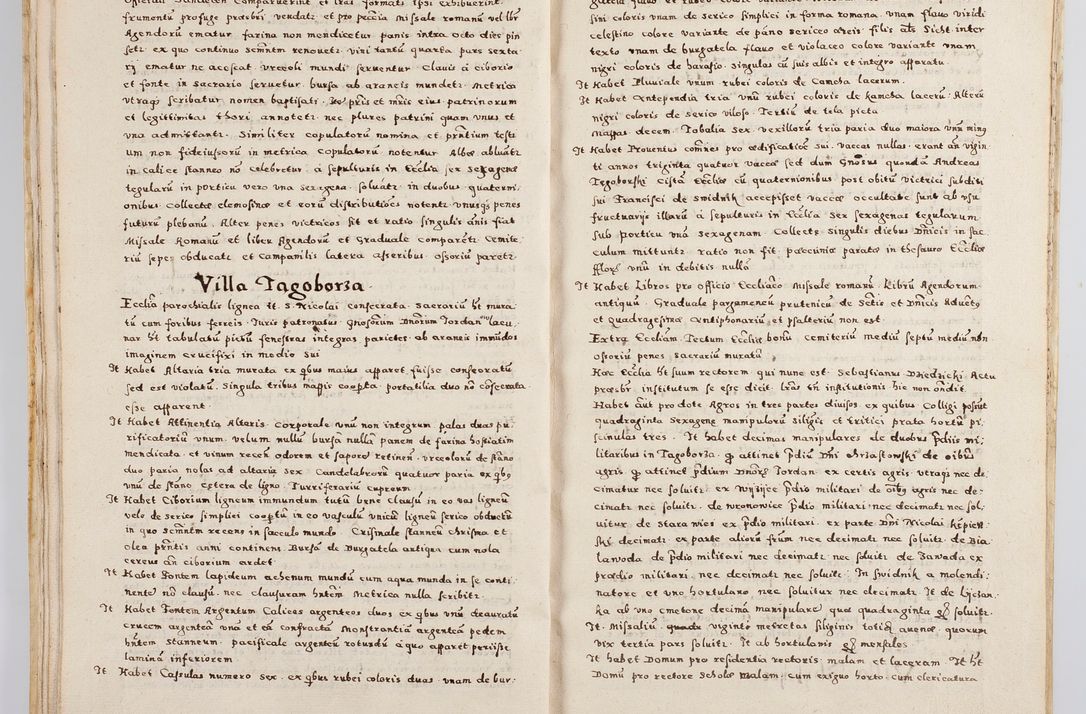 frumentu profuge praebri vendatr et pro peccia missale romanu vel lbr
Agendoru ematur farina non mendicetur panis intra octo dies pin
setr ex quo continuo scmntm renouetr vini tantu quarta pars sexta
rj ematur ne acescat vrceoli mundi seruentur Clauis a ciborio
et fonte in sacrario seruetur bursa ab araneis mundetr Metrica
vtraqs scribatur nomen baptisati pris et mris eius patrinorum
et legittimitas thori annotetr nec plures patrini quam vnus et
vna admittantr Similiter copulatoru nomina et prntium testi
um non fideiussoru in metrica copulatoru notentur Albae abluatr
in calice stanneo no celebretur a sepulturis in Ecclia sex sexagena
tegularu in porticu vero vna sexagena soluatr in duobus quaterni
onibus Collectae elemosinae et eoru distributioes notentr vnusqs penes
futuru plebanu Alter penes victricos sit et ratio singulis anis fiat
Missale Romanu et liber Agendoru et Graduale comparetr Cemite:
riu sepes obducatr et Campanilis latera asseribus ossoriu paretr
Villa Tagoborza.
Ecclia parochialis lignea tt. S. Nicolai consecrata sacrariu ht mura
tu cum foribus ferreis Iuris patronatus Gnosorum Dnorum Jordan lacu
nar ht tabulatu pictu fenestras integras parietes ab araneis immudos
imaginem crucifixi in medio sui
It Habet Altaria tria murata ex qbus maius apparet fuisse consecratu
sed est violatu. Singula tribus mappis coopta portatilia duo no cosecrata
esse apparent
It Habet Attinentia Altaris. Corporale vnu non integrum palas duas pu
rificatoriu vnum. velum nullu bursa nulla panem de farina hostiatim
mendicata. et vinum recens odorem et sapore retinens. vrceoloru de stano
duo paria nolas ad altaria sex. Candelabroru quatuor paria ex qbus
vnu de stano cetera de ligno. Turriferariu cupreum
It Habet Ciborium ligneum immundum tutu bene clausu in eo vas ligneu
velo de serico simplici cooptu in eo vasculu vnicu ligneu serico obductu
in quo scmntm recens in sacculo mundo. Crismale stanneu Chrisma et
olea prntis anni continens Bursa de Burgatela antiqua cum nola
cereus an ciborium ardet
It Habet Fontem lapideum aehenum mundu cum aqua munda in se conti
nente no clausu. nec clausuram hntem Metrica nulla scribitr
It Habet Fontem Argentum Calices argenteos duos ex qbus vnu deauratu
crucem argentea vna et ea confracta Monstrantia argentea pedem
hntem stanneum pacificale argenteu rotundu a quo apparet periisse
lamina inferiorem
It Habet Casulas numero sex. ex qbus rubei coloris duas. vnam de bur:
sini coloris vnam de serico simplici in forma romana vnam flauo viridi
celestino colore variate de pano sericeo areis filis als Sicht inter
texto vnam de burgatela flauo et violaceo colore variante vnam
nigri coloris de harasio. Singulas cu suis albis et integro apparatu
It Habet Pluuiale vnum rubei coloris de Camcha lacerum
It Habet Antependia tria vnu rubei coloris de kamcha laceru. Alteru
nigri coloris de serico viloso. Tertiu de tela picta
Mappas decem. Tobalia sex. vexilloru tria paria duo maiora vnu minq
It Habet Prouentus comnes pro aedificatioe sui vaccas nullas. erant an vigin
ti annos triginta quatuor vaccae sed dum Gnosus quonda Andreas
Tegoborski cista Eccliae cu quaternionibus post obitu victrici subditi
sui Francisci de swidnik accepisset vaccae occultate sunt ab vsu
fructuarijs illaru a sepulturis in Ecclia sex sexagenas tegularum
sub porticu vna sexagenam. Collecta singulis diebus Dnicis in sac
culum mittuntr ratio non fit paecunia parata in thesauro Eccliae
fflors vnu in debitis nullu
It Habet Libros pro officio Eccliaco Missale romanu Libru Agendorum
antiquu. Graduale pargameneu prutenicu de Sctis et Dnicis Aductq
et Quadragesima Antiphonariu et psalteriu non est
Extra Eccliam. Tectum Eccliae bonu cemiteriu mediu septu mediu non
ossoriu penes sacrariu muratu
Haec Ecclia ht suum rectorem qui nunc est Sebastianus Dziedzicki Actu
praesbr institutum se esse dicit lras tn institutionis hic non ondit
Habet aut pro dote Agros in tres partes diuisos ex quibus Colligi possut
quadraginta sexagenae manipuloru siliginis et tritici prata hortu pi
scinulas tres. It habet decimas manipulares de duobus pdijs mi:
litaribus in Tagoborza. q attinet pdiu Dni Chrzastowski de oibus
agris. q attinet pdium Dnors Jordan ex certis agris vtraqs nec de
cimatur nec soluitr ex Wijsijce pdio militari de oibq agris nec de:
cimatr nec soluitr de wronowice pdio militari nec decimatr nec sol:
uitur de stara wies ex pdio militari. ex parte Dni Nicolai kepiens:
ski decimatr ex parte alioru frum nec decimatr nec soluitr de Bia
lawoda de pdio militari nec decimatr nec soluitr de Zawada ex
praedio militari nec decimatr nec soluitr. In swidnik a molendi:
natore et vno hortulano nec soluitur nec decimatr It de lijczan:
ka ab vno cmetone decima manipulare quae quadraginta soluitr
It. Missaliu viginti metretas siliginis totidem auenae quorum
vix tertia pars soluitr. It ab hortulanis mensales.
It habet Domum pro residentia rectoris malam et laceram It ht
Domu pro rectore scholae malam. cum exiguo horto. cum clericatura